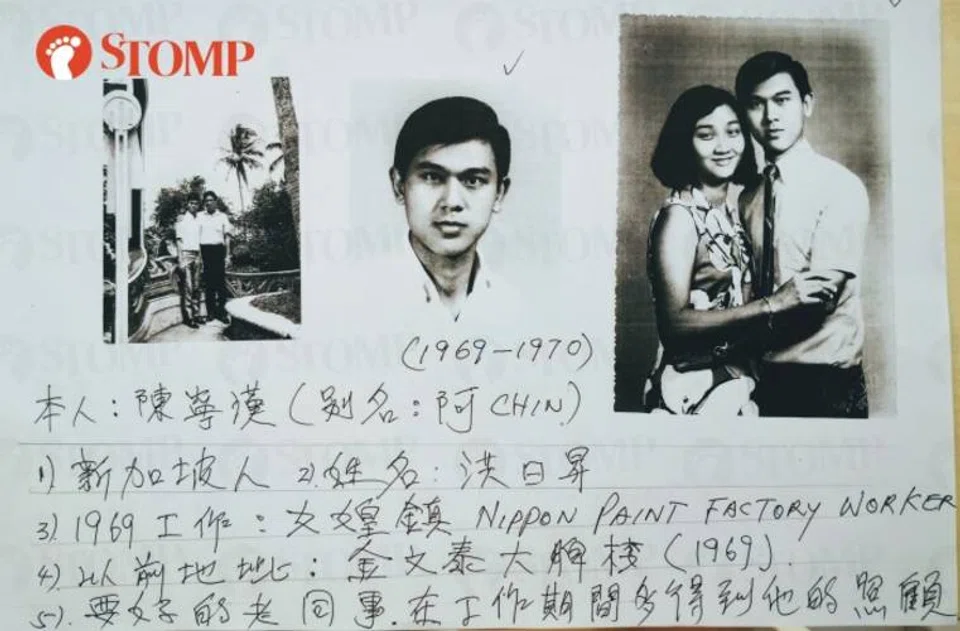 STOMP
(1969-1970)
本人:陳寧漢(别名:阿CHIN)
1) 新加坡人 2) 姓名:洪日昇
3) 1969 工作: 鎮 NIPPON PAINT FACTORY WORKER
4) 以前地址:金文泰大 (1969).
5). 要好的老同事.在工作期間多得到他的照顧